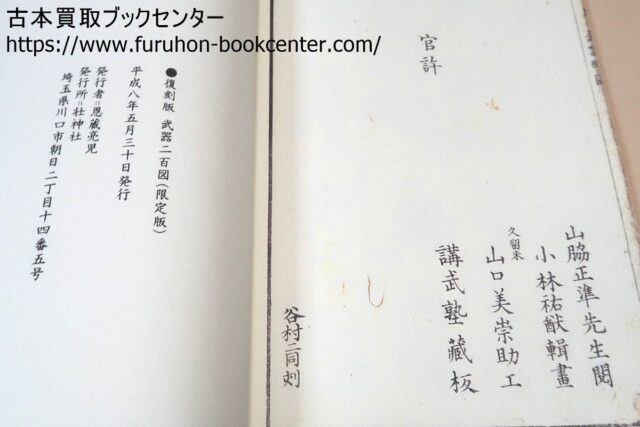 古本買取ブックセンター
https://www.furuhon-bookcenter.com/
官許
山脇正準先生閲
小林祐猷輯畫
久留米
山口美崇助工
講武塾藏板
谷村二同刻
●復刻版 武器二百図(限定版)
平成八年五月三十日発行
発行者=恩蔵亮児
発行所=壮神社
埼玉県川口市朝日二丁目十四番五号